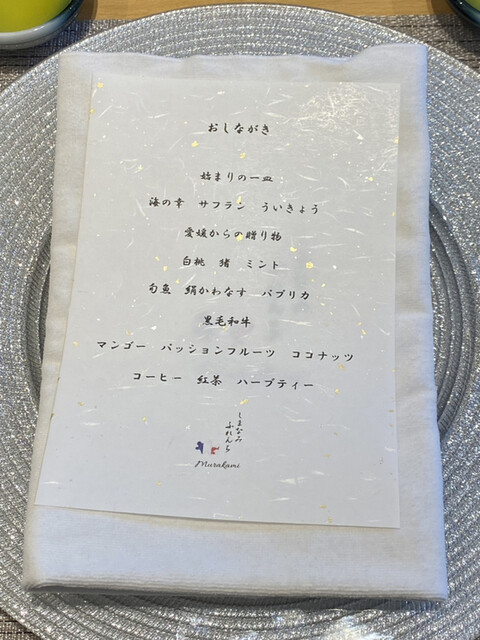 おしながき
始まりの一皿
海の幸 サフラン ういきょう
愛媛からの贈り物
白桃 猪 ミント
旬魚 絹かわなす パプリカ
黒毛和牛
マンゴー パッションフルーツ ココナッツ
コーヒー 紅茶 ハーブティー
しまなみ
ふれんち
Murakami